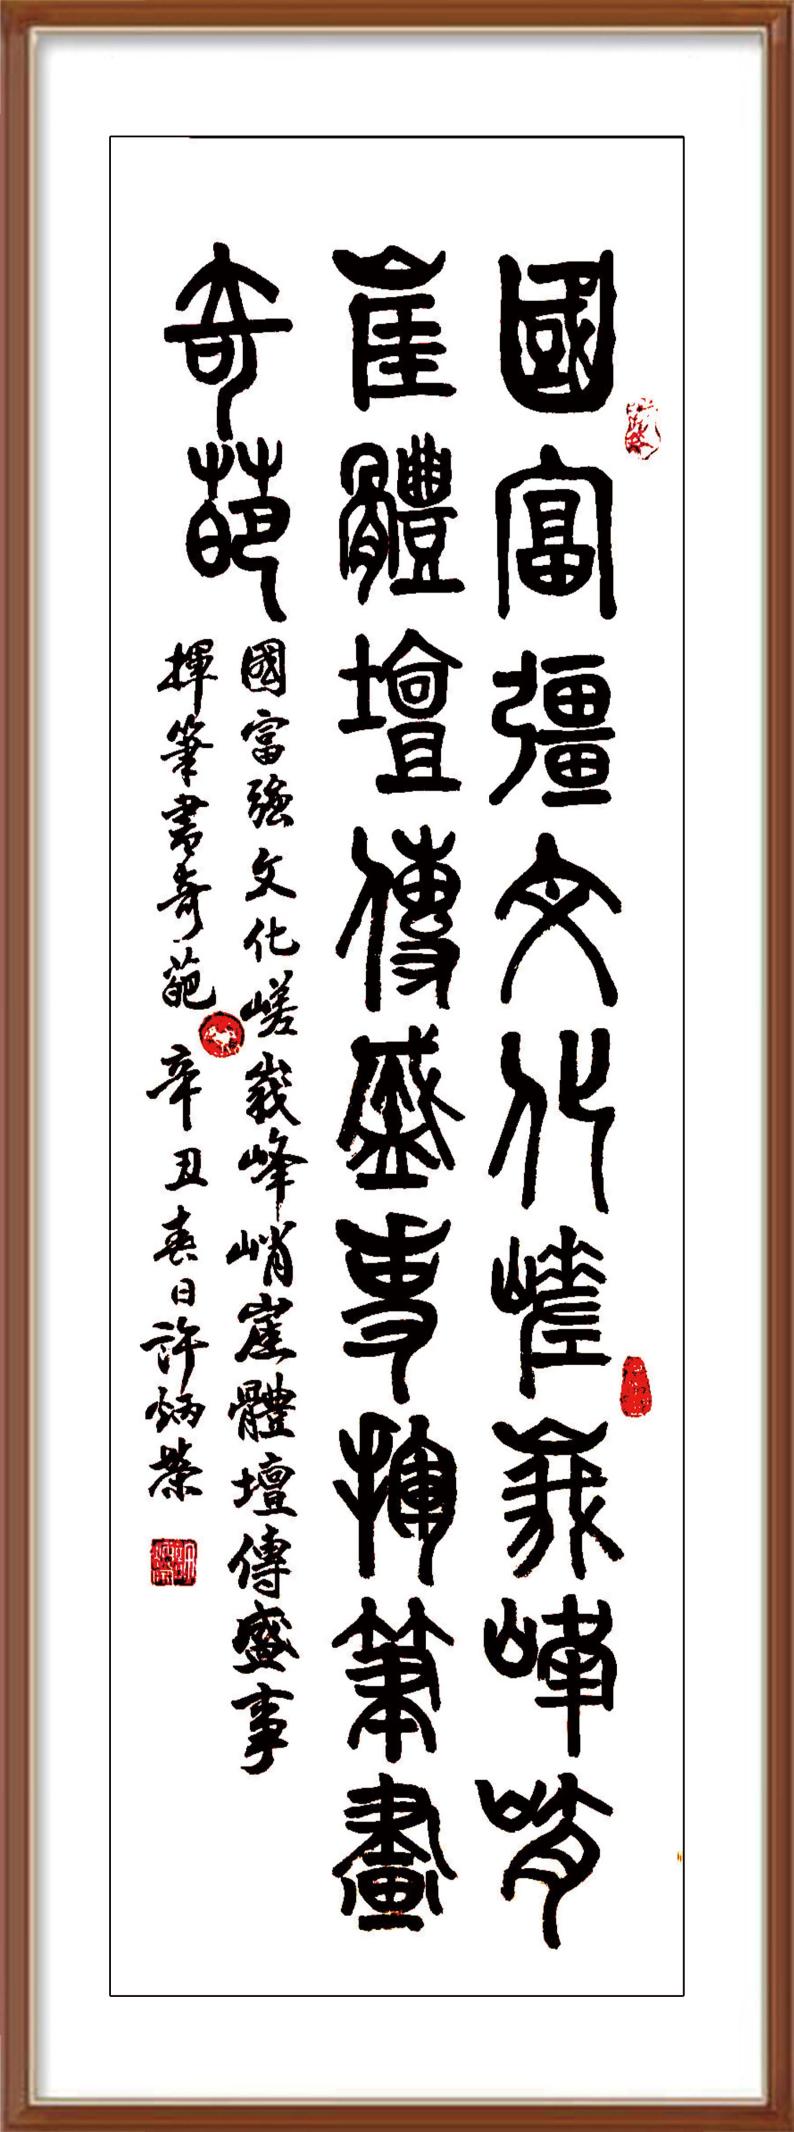 國富彊文化嵯峨峰峭
崖體壇傳盛事揮筆畫
奇葩
國富強文化嵯峨峰峭崖體壇傳盛事
揮筆書奇葩 辛丑春日許炳榮